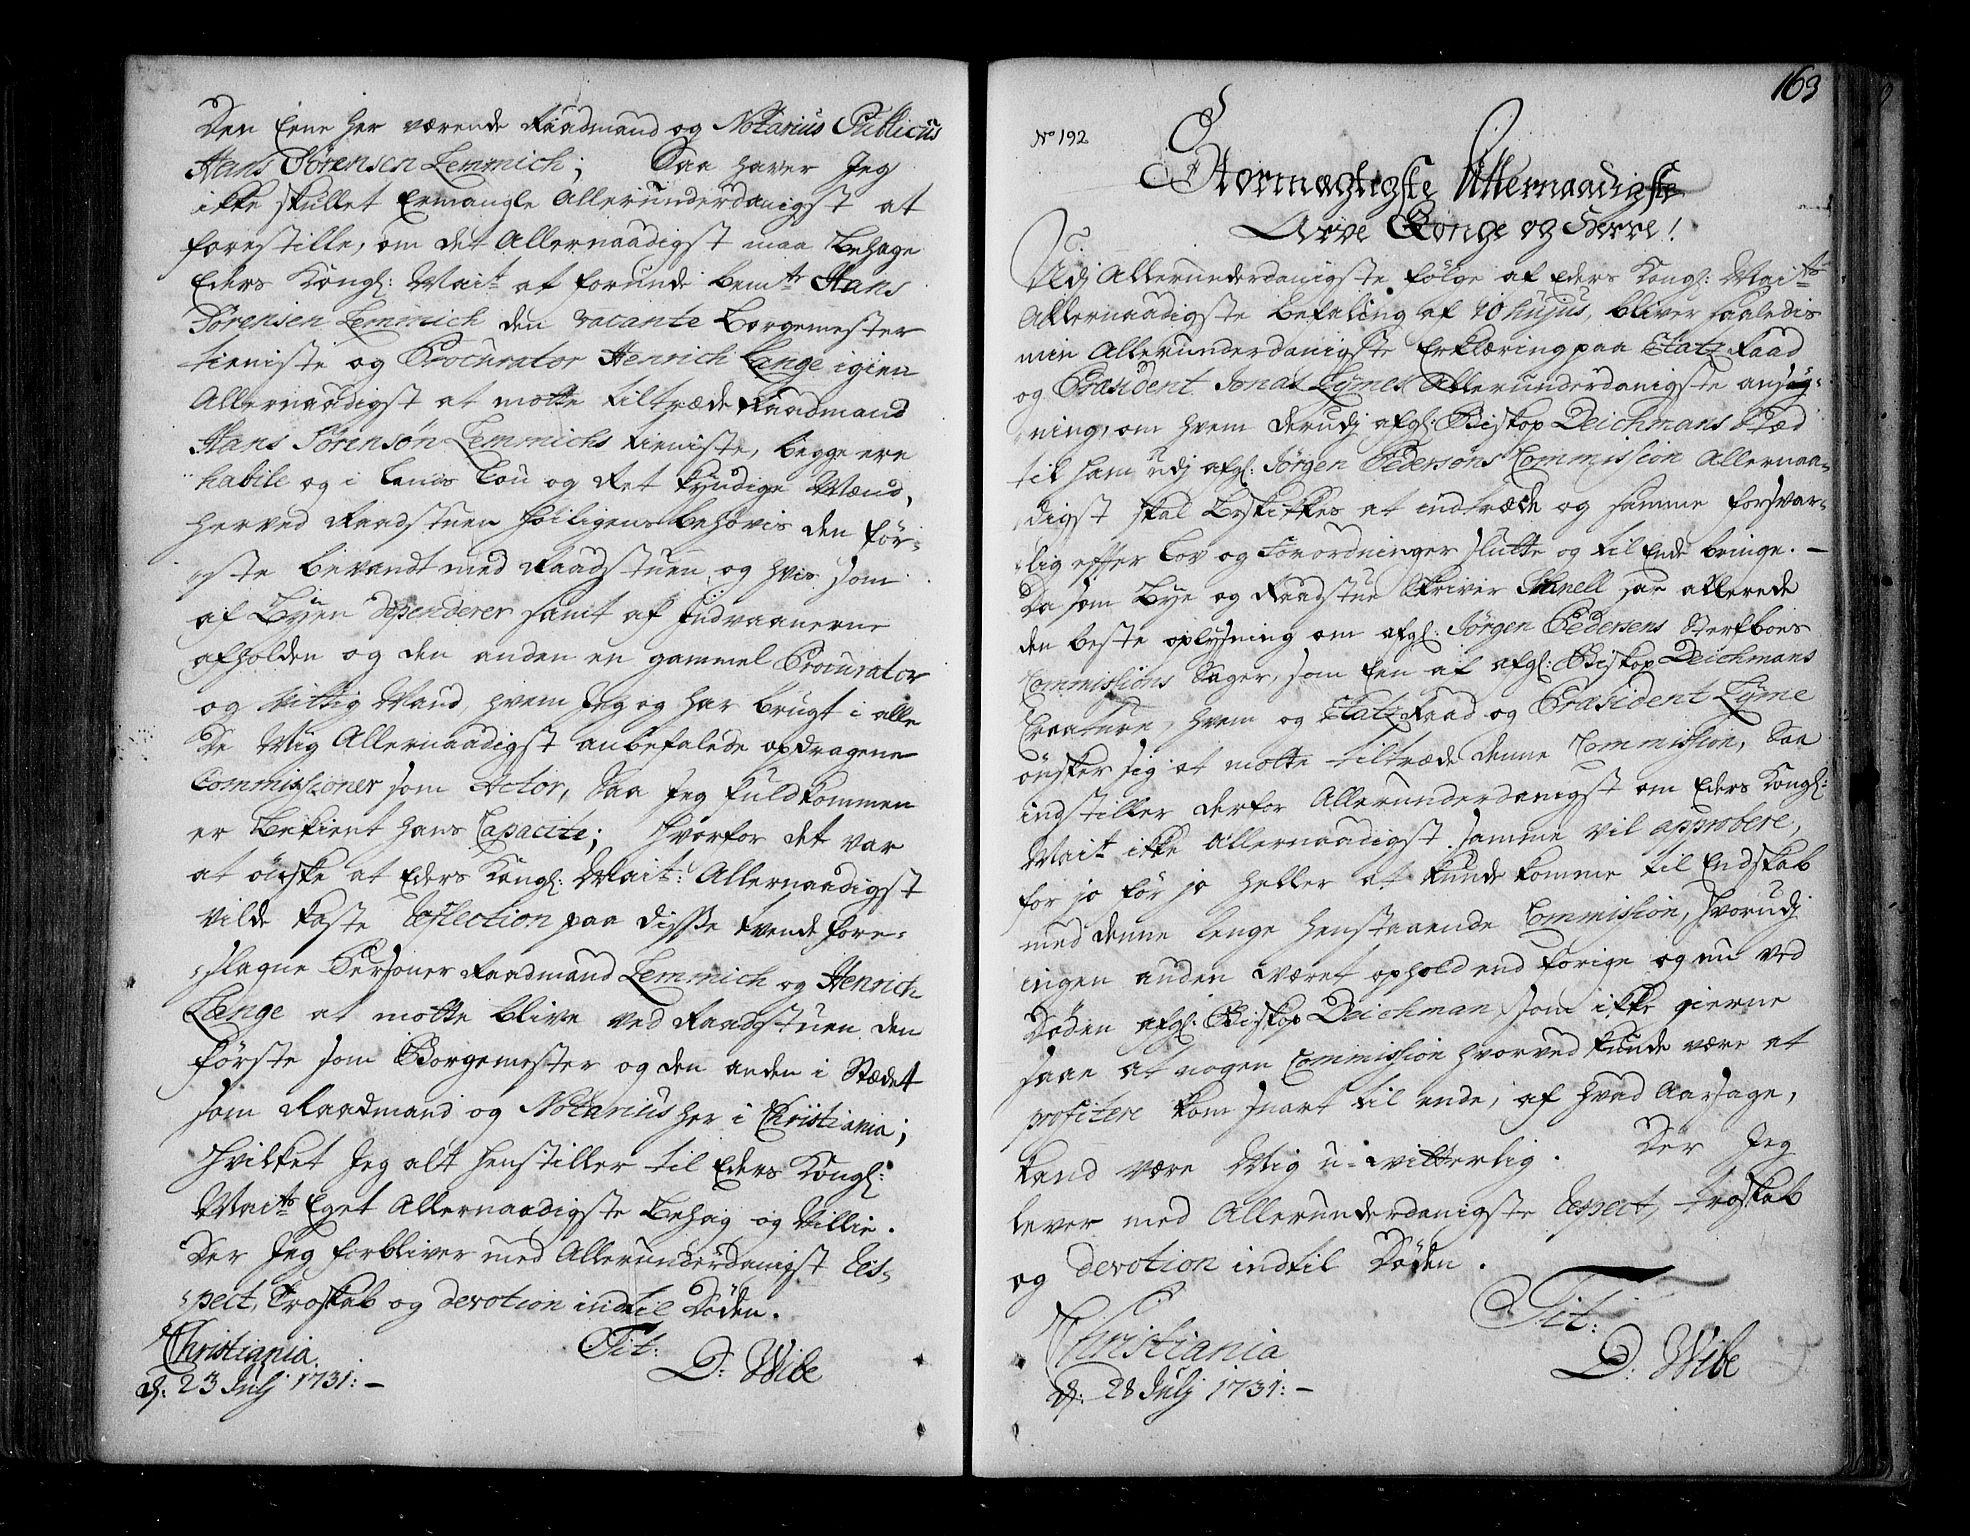 Den Eene her værende Raadmand og Notarius Publicus
Hans Sørensen Lemmich; Saa haver Jeg
ikke skullet Ermangle Allerunderdanigst at
forestille, om det Allernaadigst maa Behage
Eders Kongl: Maits at forunde bemte Hans
Sørensen Lemmich den vacante Borgemester
tieniste og Procurator Henrich Lange igien
Allernaadigst at motte tiltræde Raadmand
Hans Sørensøn Lemmichs tieniste, begge ere
habile og i Lands Lou og Ret kyndige Mænd,
herved Raadstuen høiligens behøvis den för-
ste bevandt med Raadstuen og hvis som
af Byen dependerer samt af Indvaanerne
afholden og den anden en gammel Procurator
og vittig Mand, hvem Jeg og har brugt i alle
de Mig Allernaadigst anbefalede opdragene
Commissioner som Actor, saa Jeg fuldkommen
er bekient hans Capacite; Hvorfor det var
at ønske at Eders Kongl: Mait: Allernaadigst
vilde kaste Reflection paa disse tvende fore-
slagne Persohner Raadmand Lemmich og Henrich
Lange at motte blive ved Raadstuen den
første som Borgemester og den anden i Stædet
som Raadmand og Notarius her i Christiania;
Hvilket Jeg alt henstiller til Eders Kongl:
Maits Eget Allernaadigste Behag og Villie.
Der Jeg forbliver med Allerunderdanigst Res-
pect, Troskab og devotion indtil Døden.
Christiania Tit:
d: 23 Julj 1731:– D: Wibe
163
No 192
Stormægtigste Allernaadigste
Arve Konge og Herre!
Udj Allerunderdanigste følge af Eders Kongl: Maits
Allernaadigste Befaling af 20 hujus, bliver saaledis
min Allerunderdanigste Erklæring paa Etatz Raad
og Præsident Jonas Lymes Allerunderdanigste ansøg-
ning, om hvem derudj afgl: Biskop Deichmans Stæd
til ham udj afgl: Jørgen Pedersøns Commission Allernaa-
digst skal Beskikkes at indtræde og samme forsvar-
lig effter Lov og Forordninger slutte og til Ende bringe. –
Da som Bye og Raadstue Skriver Schnell har allerede
den beste oplysning om afgl: Jørgen Pedersens Sterfboes
Commissions Sager, som Een af afgl: Biskop Deichmans
Creature, hvem og Etatz Raad og Præsident Lyme
ønsker sig at motte tiltræde denne Commission, Saa
indstiller derfor Allerunderdanigst om Eders Kongl:
Mait ikke Allernaadigst samme vil approbere,
for jo før jo heller at kunde komme til Endskab
med denne lenge henstaaende Commission, hvorudj
ingen anden været ophold end forige og nu ved
Døden afgl: Biskop Deichman som ikke gierne
saae at nogen Commission hvorved kunde være at
profitere kom snart til ende, af hvad Aarsage,
kand være Mig u-witterlig. Der Jeg
lever med Allerunderdanigste Respect, troskab
og devotion indtil Døden.
Christiania Tit:
d: 28 Julj 1731:– D: Wibe